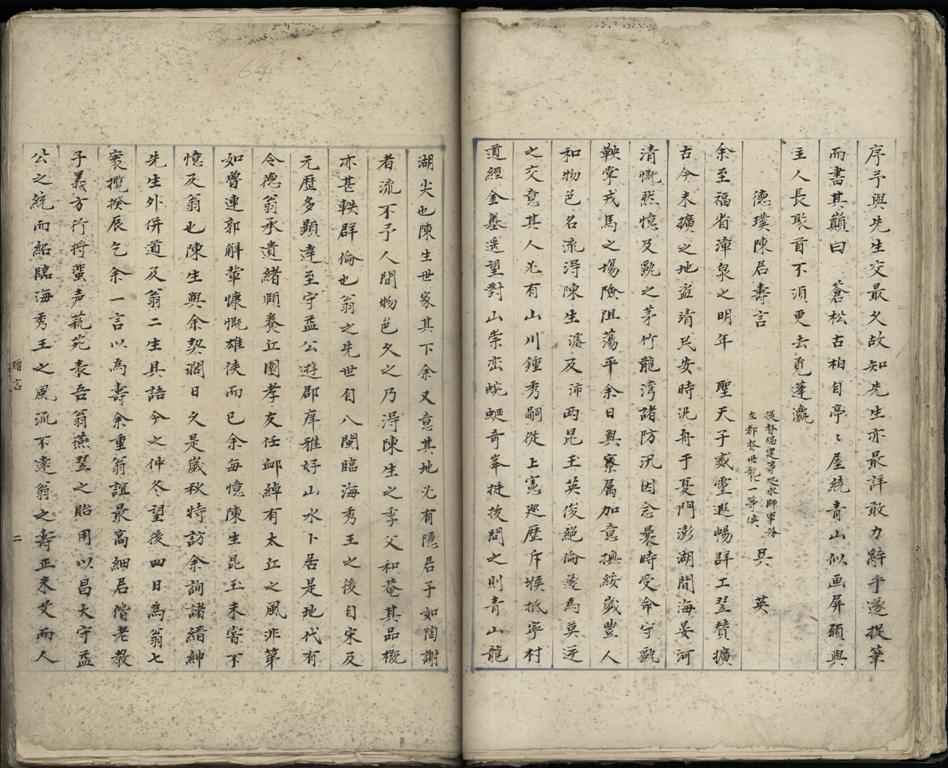 序予與先生交最久故知先生亦最詳敢力辭乎遂援筆
而書其巔曰　蒼松古柏自亭〻屋繞青山似画屏願與
主人長聚首不須更去覓蓬瀛
德璞陳君壽言
提督福建等處水師軍務
左都督世襲一等侯　吳　英
余至福省漳泉之明年　聖天子威靈遐暢群工翌贊擴
古今未擴之地盜清民安時汎舟于夏門澎湖間海晏河
清慨然憶及甌之茅竹龍灣諸防汛因念曩時受命守甌
鞅掌戎馬之場險阻蕩平余日與寮属加意撫綏歲豐人
和物色名流淂陳生濬及沛兩昆玉英俊絕倫遂為莫逆
之交意其人必有山川鍾秀嗣從上憲廵歷斥堠抵寧村
道經金墪遥望對山崇峦蜿蜒奇峯挺拔問之則青山龍
湖尖也陳生世家其下余又意其地必有隱君子如陶謝
者流不予人間物色久之乃淂陳生之季父和菴其品概
亦甚軼群倫也翁之先世自八閩臨海秀王之後自宋及
元歷多顯達至守孟公遊郡庠雅好山水卜居是地代有
令德翁承遺緒頤養丘園孝友任卹綽有太丘之風非第
如魯連郭解輩慷慨雄俠而已余每憶陳生昆玉未嘗不
憶及翁也陳生與余契濶日久是歲秋特訪余詢諸縉紳
先生外併道及翁二生具語今之仲冬望後四日為翁七
袠攬揆辰乞余一言以為壽余重翁誼最高細君偕老教
子義方行將蜚声蓺苑表吾翁燕翌之貽用以昌大守孟
公之統而紹臨海秀王之風流不遠翁之壽正未艾而人
贈言
二
64